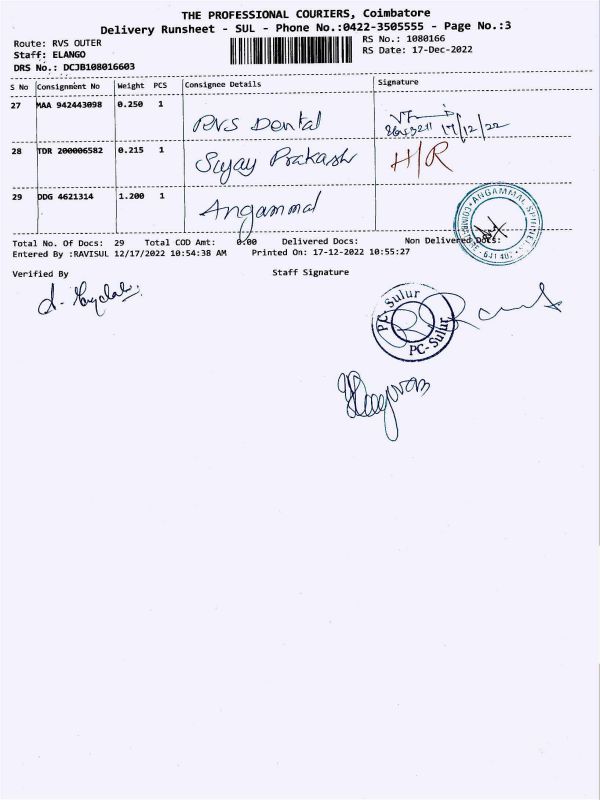 THE PROFESSIONAL COURIERS, Coimbatore
Delivery Runsheet - SUL - Phone No.:0422-3505555 - Page No.:3
Route: RVS OUTER
RS No.: 1080166
Staff: ELANGO
RS Date: 17-Dec-2022
DRS No.: DCJB108016603
S No Consignment No Weight PCS Consignee Details Signature
27 MAA 942443098 0.250 1 RVS Dental 17/12/22
28 TDR 200006582 0.215 1 Sujay Prakash H/R
29 DDG 4621314 1.200 1 Angammal
Total No. Of Docs: 29 Total COD Amt: 0.00 Delivered Docs: Non Delivered Docs:
Entered By :RAVISUL 12/17/2022 10:54:38 AM Printed On: 17-12-2022 10:55:27
Verified By Staff Signature
PC-Sulur
PC-Sulur